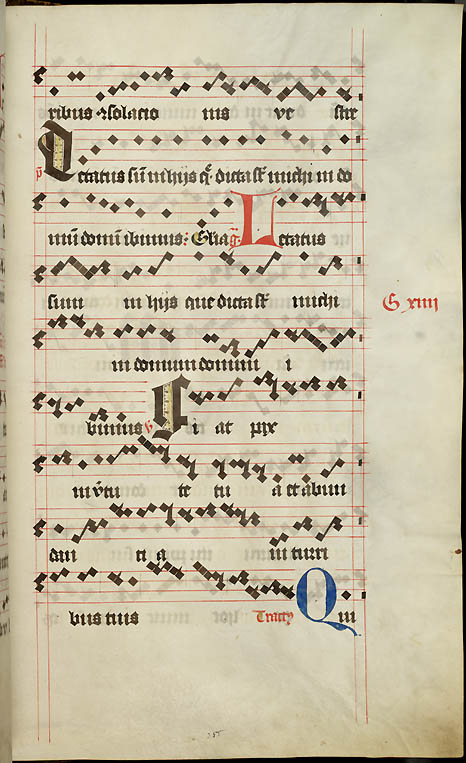 ribus ↄsolacio nis ve stre
Letatus sū in hijs q̄ dicta sūt michi in do
mū domī ibimus. Gl'ia g̃ Letatus
sum in hijs que dicta sūt michi
in domum domini i
bimus ꝟ Fi at pax
in v̓tu te tu a et abun
dan ti a in turri
bus tuis Tractꝰ Qui
G xiiij